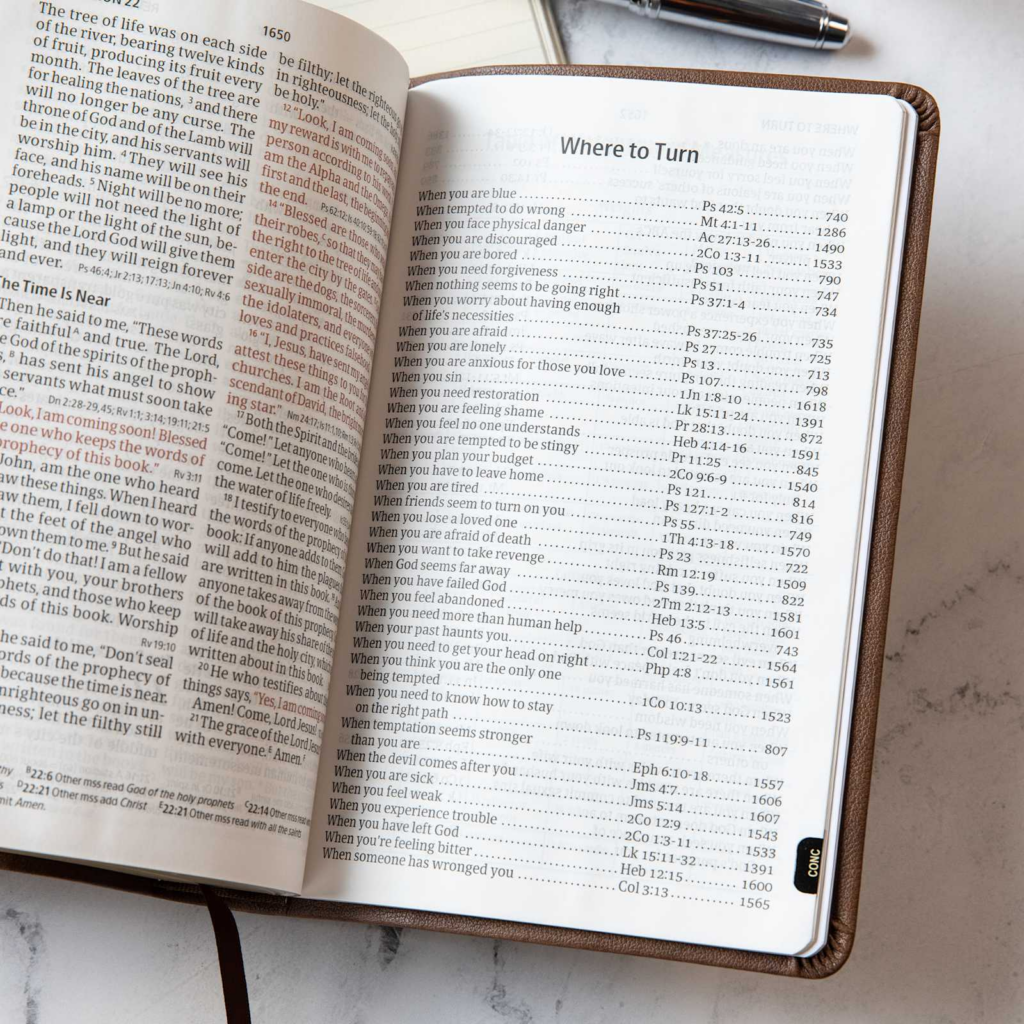 22
1650
The tree of life was on each side
of the river, bearing twelve kinds
of fruit, producing its fruit every
month. The leaves of the tree are
for healing the nations, 3 and there
will no longer be any curse. The
throne of God and of the Lamb will
be in the city, and his servants will
worship him. 4 They will see his
face, and his name will be on their
foreheads. 5 Night will be no more;
people will not need the light of
a lamp or the light of the sun, be-
cause the Lord God will give them
light, and they will reign forever
and ever. Ps 46:4; Jr 2:13; 17:13; Jn 4:10; Rv 4:6
The Time Is Near
Then he said to me, “These words
are faithful A and true. The Lord,
God of the spirits of the proph-
8 has sent his angel to show
servants what must soon take
Dn 2:28-29,45; Rv 1:1; 3:14; 19:11; 21:5
Look, I am coming soon! Blessed
one who keeps the words of
prophecy of this book.” Rv 3:11
John, am the one who heard
saw these things. When I heard
saw them, I fell down to wor-
at the feet of the angel who
shown them to me. 9 But he said
“Don’t do that! I am a fellow
with you, your brothers
prophets, and those who keep
words of this book. Worship
Rv 19:10
he said to me, “Don’t seal
words of the prophecy of
because the time is near.
unrighteous go on in un-
ness; let the filthy still
be filthy; let the righteous
in righteousness; let the
be holy.”
12 “Look, I am coming soon,
my reward is with me to
person according to his
am the Alpha and the Omega,
first and the last, the beginning
the end.
14 “Blessed are those who
their robes, so that they may
the right to the tree of life and
enter the city by the gates.
side are the dogs, the sorcerers,
sexually immoral, the murderers,
the idolaters, and everyone
loves and practices falsehood.
16 “I, Jesus, have sent my angel
attest these things to you
churches. I am the Root and
scendant of David, the bright
ing star.”
17 Both the Spirit and the bride
“Come!” Let anyone who hears,
“Come!” Let the one who is
come. Let the one who desires
the water of life freely.
18 I testify to everyone who
the words of the prophecy of
book: If anyone adds to them,
will add to him the plagues
are written in this book.
anyone takes away from the
of the book of this prophecy,
will take away his share of
of life and the holy city, which
written about in this book.
20 He who testifies about
things says, “Yes, I am coming
Amen! Come, Lord Jesus!
21 The grace of the Lord Jesus
with everyone. E Amen. F
B 22:6 Other mss read God of the holy prophets C 22:14 Other mss read
D 22:21 Other mss add Christ E 22:21 Other mss read with all the saints
omit Amen.
Where to Turn
When you are blue Ps 42:5 740
When tempted to do wrong Mt 4:1-11 1286
When you face physical danger Ac 27:13-26 1490
When you are discouraged 2Co 1:3-11 1533
When you are bored Ps 103 790
When you need forgiveness Ps 51 747
When nothing seems to be going right Ps 37:1-4 734
When you worry about having enough
of life’s necessities Ps 37:25-26 735
When you are afraid Ps 27 725
When you are lonely Ps 13 713
When you are anxious for those you love Ps 107 798
When you sin 1Jn 1:8-10 1618
When you need restoration Lk 15:11-24 1391
When you are feeling shame Pr 28:13 872
When you feel no one understands Heb 4:14-16 1591
When you are tempted to be stingy Pr 11:25 845
When you plan your budget 2Co 9:6-9 1540
When you have to leave home Ps 121 814
When you are tired Ps 127:1-2 816
When friends seem to turn on you Ps 55 749
When you lose a loved one 1Th 4:13-18 1570
When you are afraid of death Ps 23 722
When you want to take revenge Rm 12:19 1509
When God seems far away Ps 139 822
When you have failed God 2Tm 2:12-13 1581
When you feel abandoned Heb 13:5 1601
When you need more than human help Ps 46 743
When your past haunts you Col 1:21-22 1564
When you need to get your head on right Php 4:8 1561
When you think you are the only one
being tempted 1Co 10:13 1523
When you need to know how to stay
on the right path Ps 119:9-11 807
When temptation seems stronger
than you are Eph 6:10-18 1557
When the devil comes after you Jms 4:7 1606
When you are sick Jms 5:14 1607
When you feel weak 2Co 12:9 1543
When you experience trouble 2Co 1:3-11 1533
When you have left God Lk 15:11-32 1391
When you’re feeling bitter Heb 12:15 1600
When someone has wronged you Col 3:13 1565
CONC